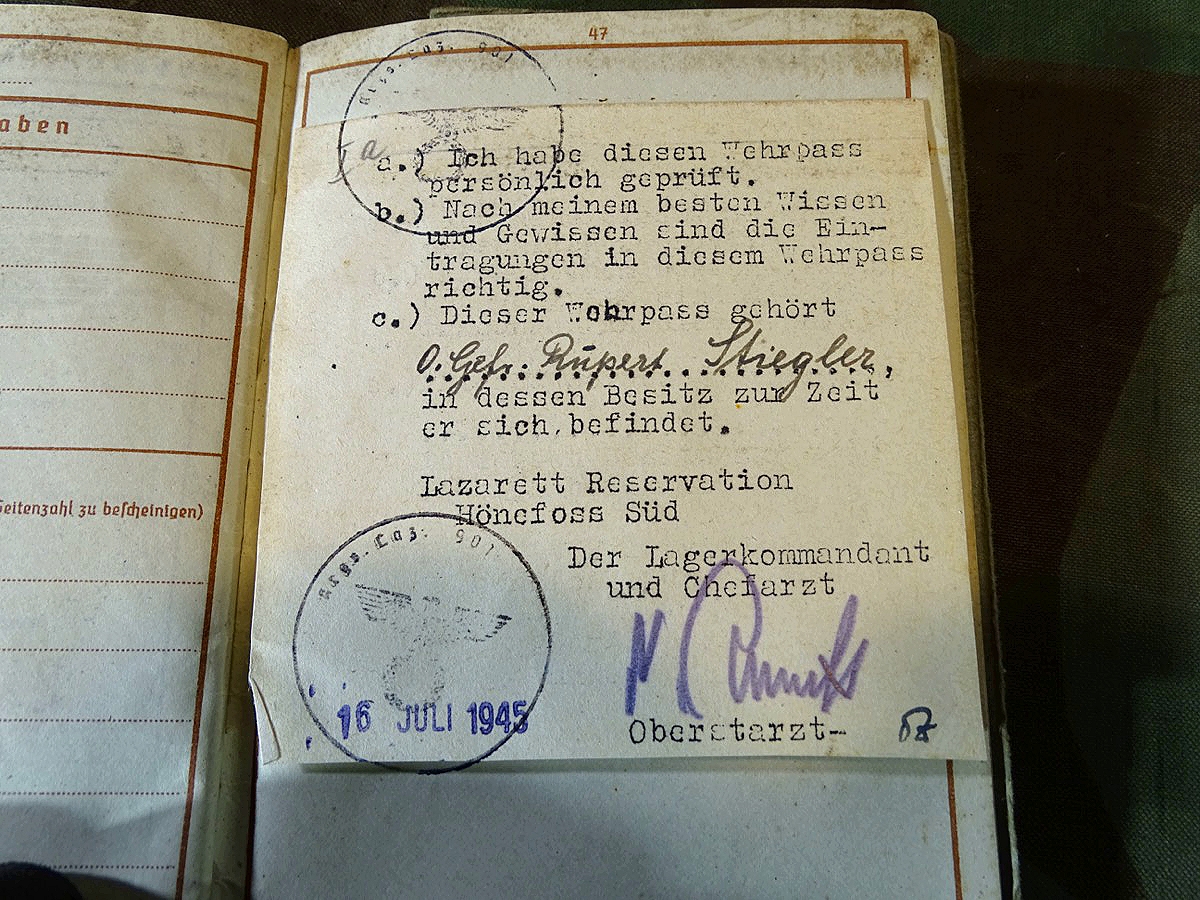 47
aben
Seitenzahl zu bescheinigen)
Krgs. Laz. 901
a
a.) Ich habe diesen Wehrpass
persönlich geprüft.
b.) Nach meinem besten Wissen
und Gewissen sind die Ein-
tragungen in diesem Wehrpass
richtig.
c.) Dieser Wehrpass gehört
O.Gefr. Rupert Stiegler,
in dessen Besitz zur Zeit
er sich befindet.
Lazarett Reservation
Hönefoss Süd
Krgs. Laz. 901
Der Lagerkommandant
und Chefarzt
16 JULI 1945
Oberstarzt-